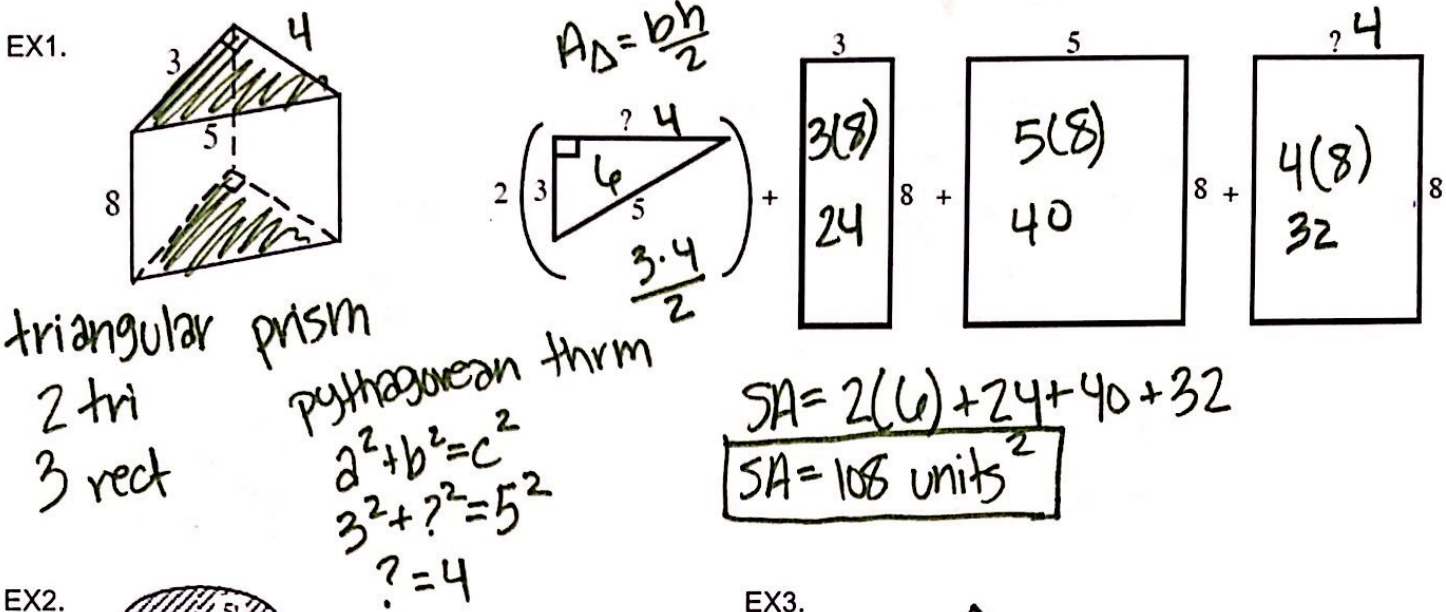 EX1.
3
4
5
8
A△ = bh/2
2
3
? 4
6
5
3·4/2
+
3
3(8)
24
8
+
5
5(8)
40
8
+
? 4
4(8)
32
8
triangular prism
2 tri
3 rect
pythagorean thrm
a²+b²=c²
3²+?²=5²
?=4
SA= 2(6)+24+40+32
SA= 108 units²
EX2.
EX3.